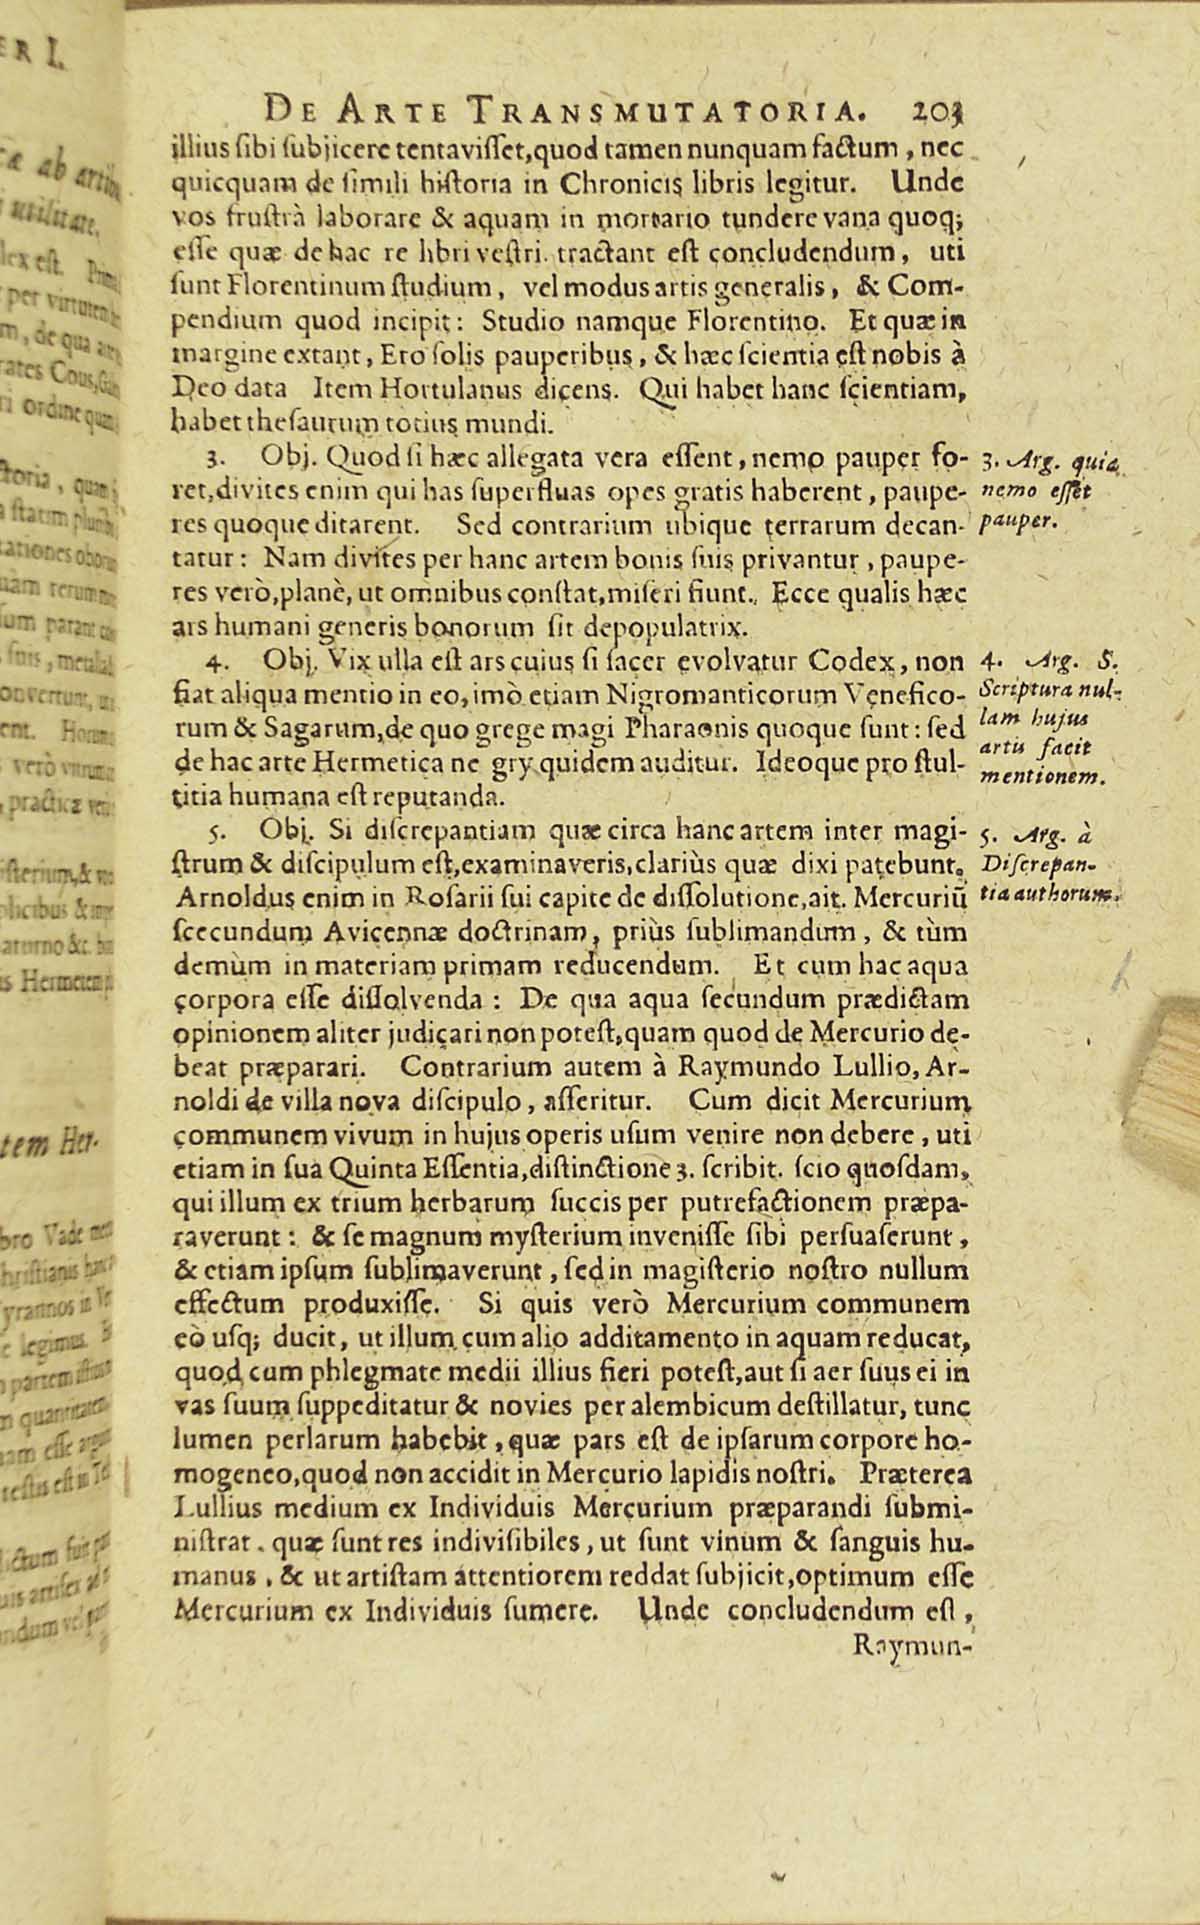 DE ARTE TRANSMUTATORIA. 203
illius ſibi ſubjicere tentaviſſet, quod tamen nunquam factum, nec
quicquam de ſimili hiſtoria in Chronicis libris legitur. Unde
vos fruſtrà laborare & aquam in mortario tundere vana quoq;
eſſe quæ de hac re libri veſtri tractant eſt concludendum, uti
ſunt Florentinum ſtudium, vel modus artis generalis, & Com-
pendium quod incipit: Studio namque Florentino. Et quæ in
margine extant, Ero ſolis pauperibus, & hæc ſcientia eſt nobis à
Deo data Item Hortulanus dicens. Qui habet hanc ſcientiam,
habet theſaurum totius mundi.
3. Obj. Quod ſi hæc allegata vera eſſent, nemo pauper fo-
ret, divites enim qui has ſuperfluas opes gratis haberent, paupe-
res quoque ditarent. Sed contrarium ubique terrarum decan-
tatur: Nam divites per hanc artem bonis ſuis privantur, paupe-
res verò, planè, ut omnibus conſtat, miſeri fiunt. Ecce qualis hæc
ars humani generis bonorum ſit depopulatrix.
3. Arg. quia
nemo eſſet
pauper.
4. Obj. Vix ulla eſt ars cuius ſi ſacer evolvatur Codex, non
fiat aliqua mentio in eo, imò etiam Nigromanticorum Venefico-
rum & Sagarum, de quo grege magi Pharaonis quoque ſunt: ſed
de hac arte Hermetica ne gry quidem auditur. Ideoque pro ſtul-
titia humana eſt reputanda.
4. Arg. S.
Scriptura nul-
lam hujus
artis facit
mentionem.
5. Obj. Si diſcrepantiam quæ circa hanc artem inter magi-
ſtrum & diſcipulum eſt, examinaveris, clariùs quæ dixi patebunt.
Arnoldus enim in Roſarii ſui capite de diſſolutione, ait. Mercuriũ
ſcecundum Avicennæ doctrinam, priùs ſublimandum, & tùm
demùm in materiam primam reducendum. Et cum hac aqua
corpora eſſe diſſolvenda: De qua aqua ſecundum prædictam
opinionem aliter judicari non poteſt, quam quod de Mercurio de-
beat præparari. Contrarium autem à Raymundo Lullio, Ar-
noldi de villa nova diſcipulo, aſſeritur. Cum dicit Mercurium
communem vivum in hujus operis uſum venire non debere, uti
etiam in ſua Quinta Eſſentia, diſtinctione 3. ſcribit. ſcio quoſdam,
qui illum ex trium herbarum ſuccis per putrefactionem præpa-
raverunt: & ſe magnum myſterium inveniſſe ſibi perſuaſerunt,
& etiam ipſum ſublimaverunt, ſed in magiſterio noſtro nullum
effectum produxiſſe. Si quis verò Mercurium communem
eò uſq; ducit, ut illum cum alio additamento in aquam reducat,
quod cum phlegmate medii illius fieri poteſt, aut ſi aer ſuus ei in
vas ſuum ſuppeditatur & novies per alembicum deſtillatur, tunc
lumen perlarum habebit, quæ pars eſt de ipſarum corpore ho-
mogeneo, quod non accidit in Mercurio lapidis noſtri. Præterea
Lullius medium ex Individuis Mercurium præparandi ſubmi-
niſtrat. quæ ſunt res indiviſibiles, ut ſunt vinum & ſanguis hu-
manus, & ut artiſtam attentiorem reddat ſubjicit, optimum eſſe
Mercurium ex Individuis ſumere. Unde concludendum eſt,
Raymun-
5. Arg. à
Diſcrepan-
tia authorum.
ER I.